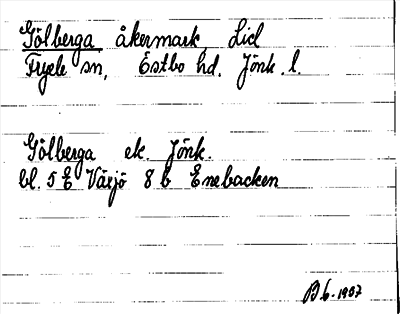 Gölberga åkermark, Licl
Fryele sn, Östbo hd. Jönk. l.
Gölberga ek. Jönk.
bl. 5 E Växjö 8 b Enebacken